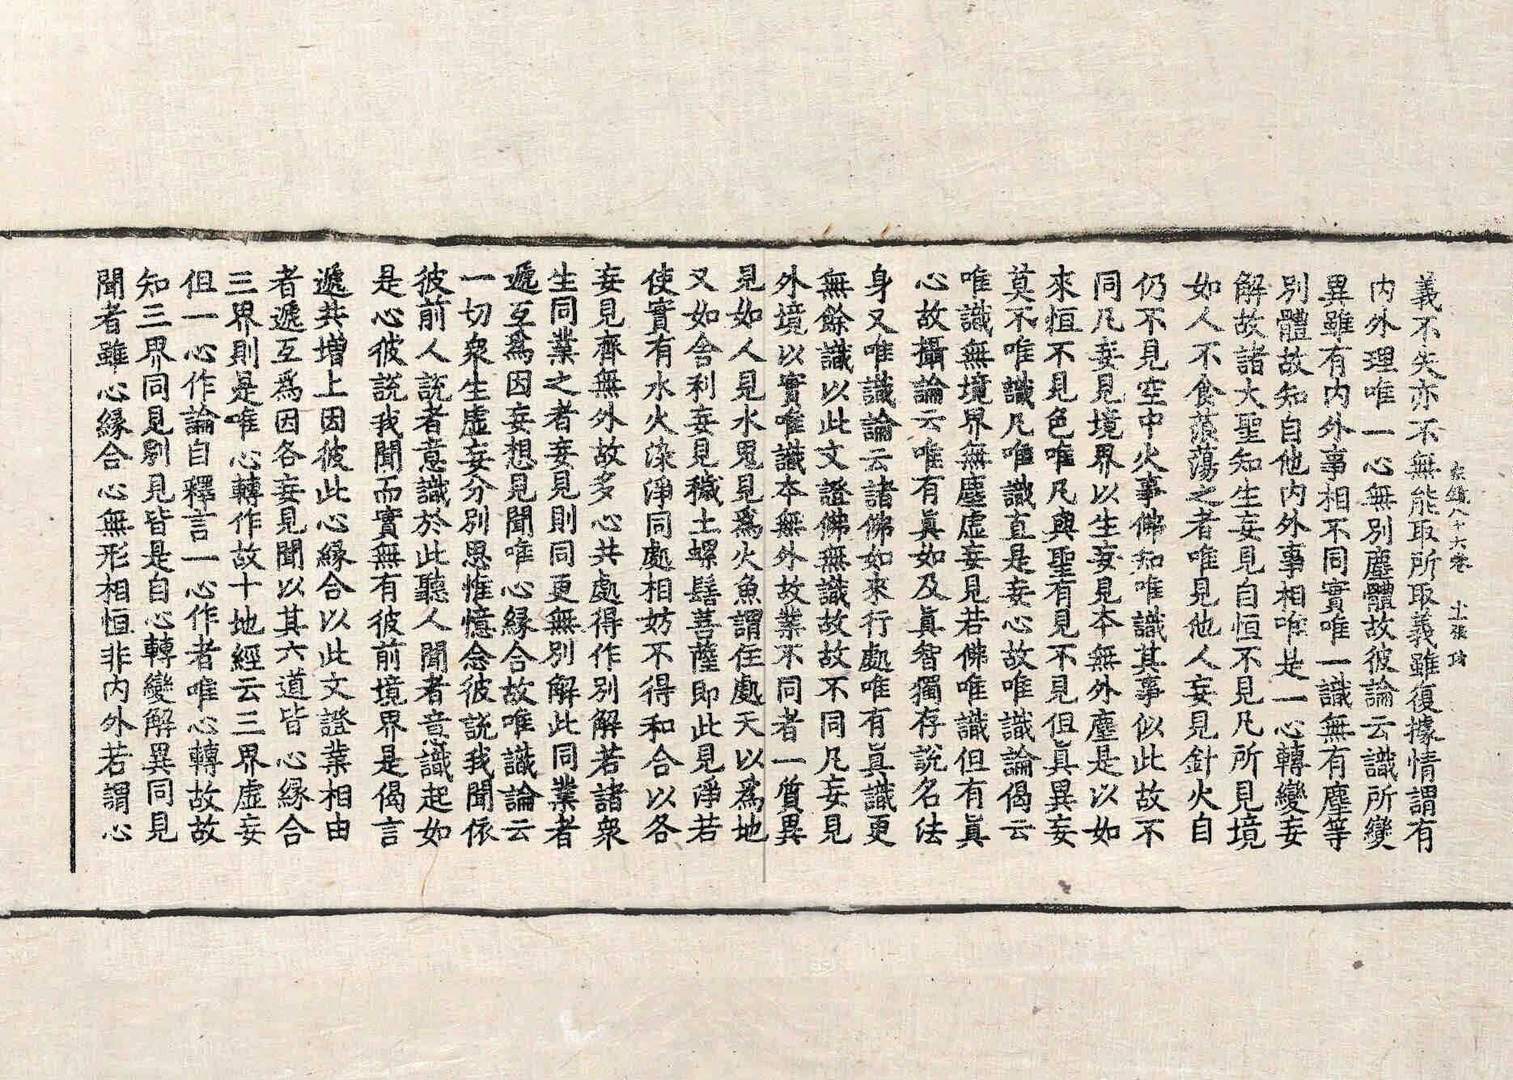 宗鏡八十六卷 十一張
義不失亦不無能取所取義雖復據情謂有
內外理唯一心無別塵體故彼論云識所變
異雖有內外事相不同實唯一識無有塵等
別體故知自他內外事相唯是一心轉變妄
解故諸大聖知生妄見自恒不見凡所見境
如人不食蒗蕩之者唯見他人妄見針火自
仍不見空中火事佛知唯識其事似此故不
同凡妄見境界以生妄見本無外塵是以如
來恒不見色唯凡與聖有見不見但眞異妄
莫不唯識凡唯識直是妄心故唯識論偈云
唯識無境界無塵虛妄見若佛唯識但有眞
心故攝論云唯有眞如及眞智獨存說名法
身又唯識論云諸佛如來行處唯有眞識更
無餘識以此文證佛無識故故不同凡妄見
外境以實唯識本無外故業不同者一質異
見如人見水鬼見爲火魚謂住處天以爲地
又如舍利妄見穢土螺髻菩薩即此見淨若
使實有水火染淨同處相妨不得和合以各
妄見齊無外故多心共處得作別解若諸衆
生同業之者妄見則同更無別解此同業者
遞互爲因妄想見聞唯心緣合故唯識論云
一切衆生虛妄分別思惟憶念彼說我聞依
彼前人說者意識於此聽人聞者意識起如
是心彼說我聞而實無有彼前境界是偈言
遞共增上因彼此心緣合以此文證業相由
者遞互爲因各妄見聞以其六道皆心緣合
三界則是唯心轉作故十地經云三界虛妄
但一心作論自釋言一心作者唯心轉故故
知三界同見別見皆是自心轉變解異同見
聞者雖心緣合心無形相恒非內外若謂心